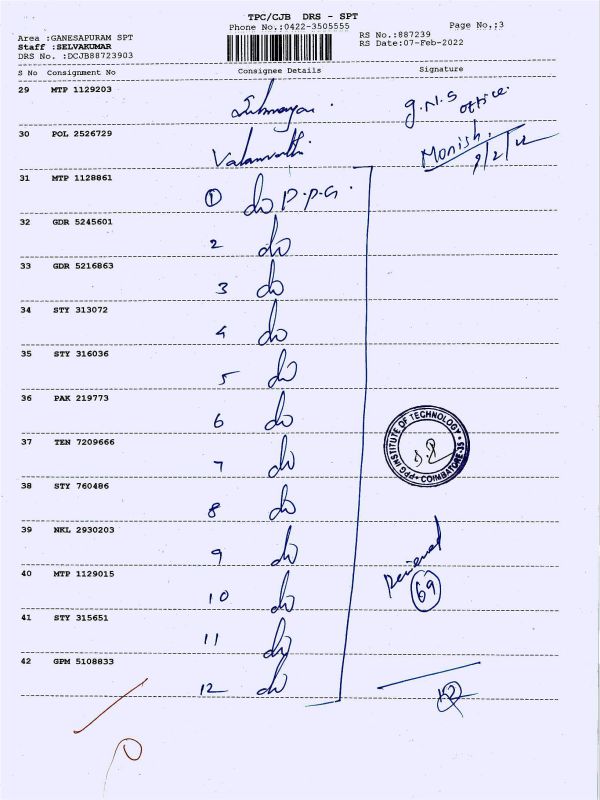 TPC/CJB DRS - SPT
Phone No.:0422-3505555
Page No.:3
Area :GANESAPURAM SPT
Staff :SELVAKUMAR
DRS No. :DCJB88723903
RS No.:887239
RS Date:07-Feb-2022
S No Consignment No Consignee Details Signature
29 MTP 1129203
G.N.S office.
30 POL 2526729
Monish.
9/2/22
31 MTP 1128861
1 do P.P.G.
32 GDR 5245601
2 do
33 GDR 5216863
3 do
34 STY 313072
4 do
35 STY 316036
5 do
36 PAK 219773
6 do
PPG INSTITUTE OF TECHNOLOGY * COIMBATORE-35 *
37 TEN 7209666
7 do
38 STY 760486
8 do
39 NKL 2930203
9 do
40 MTP 1129015
69
10 do
41 STY 315651
11 do
42 GPM 5108833
12 do